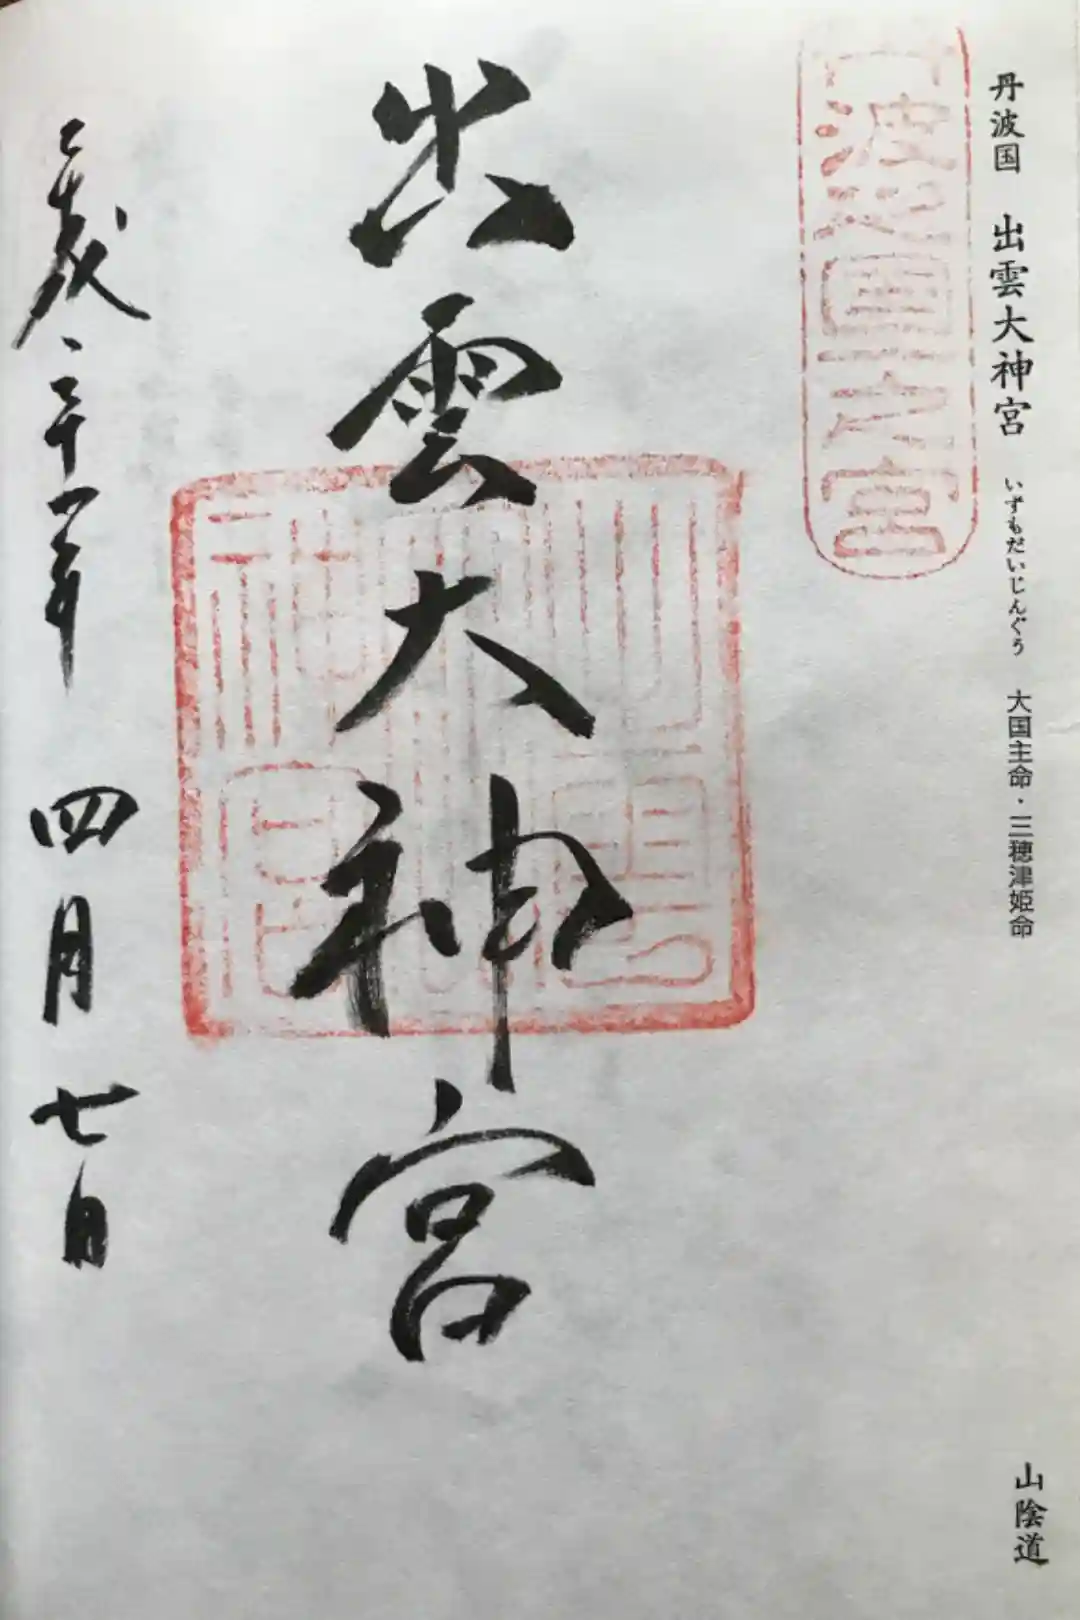 丹波国 出雲大神宮 いずもだいじんぐう 大国主命・三穂津姫命
山陰道
丹波之国一之宮
出雲大神宮
平成三十一年 四月七日